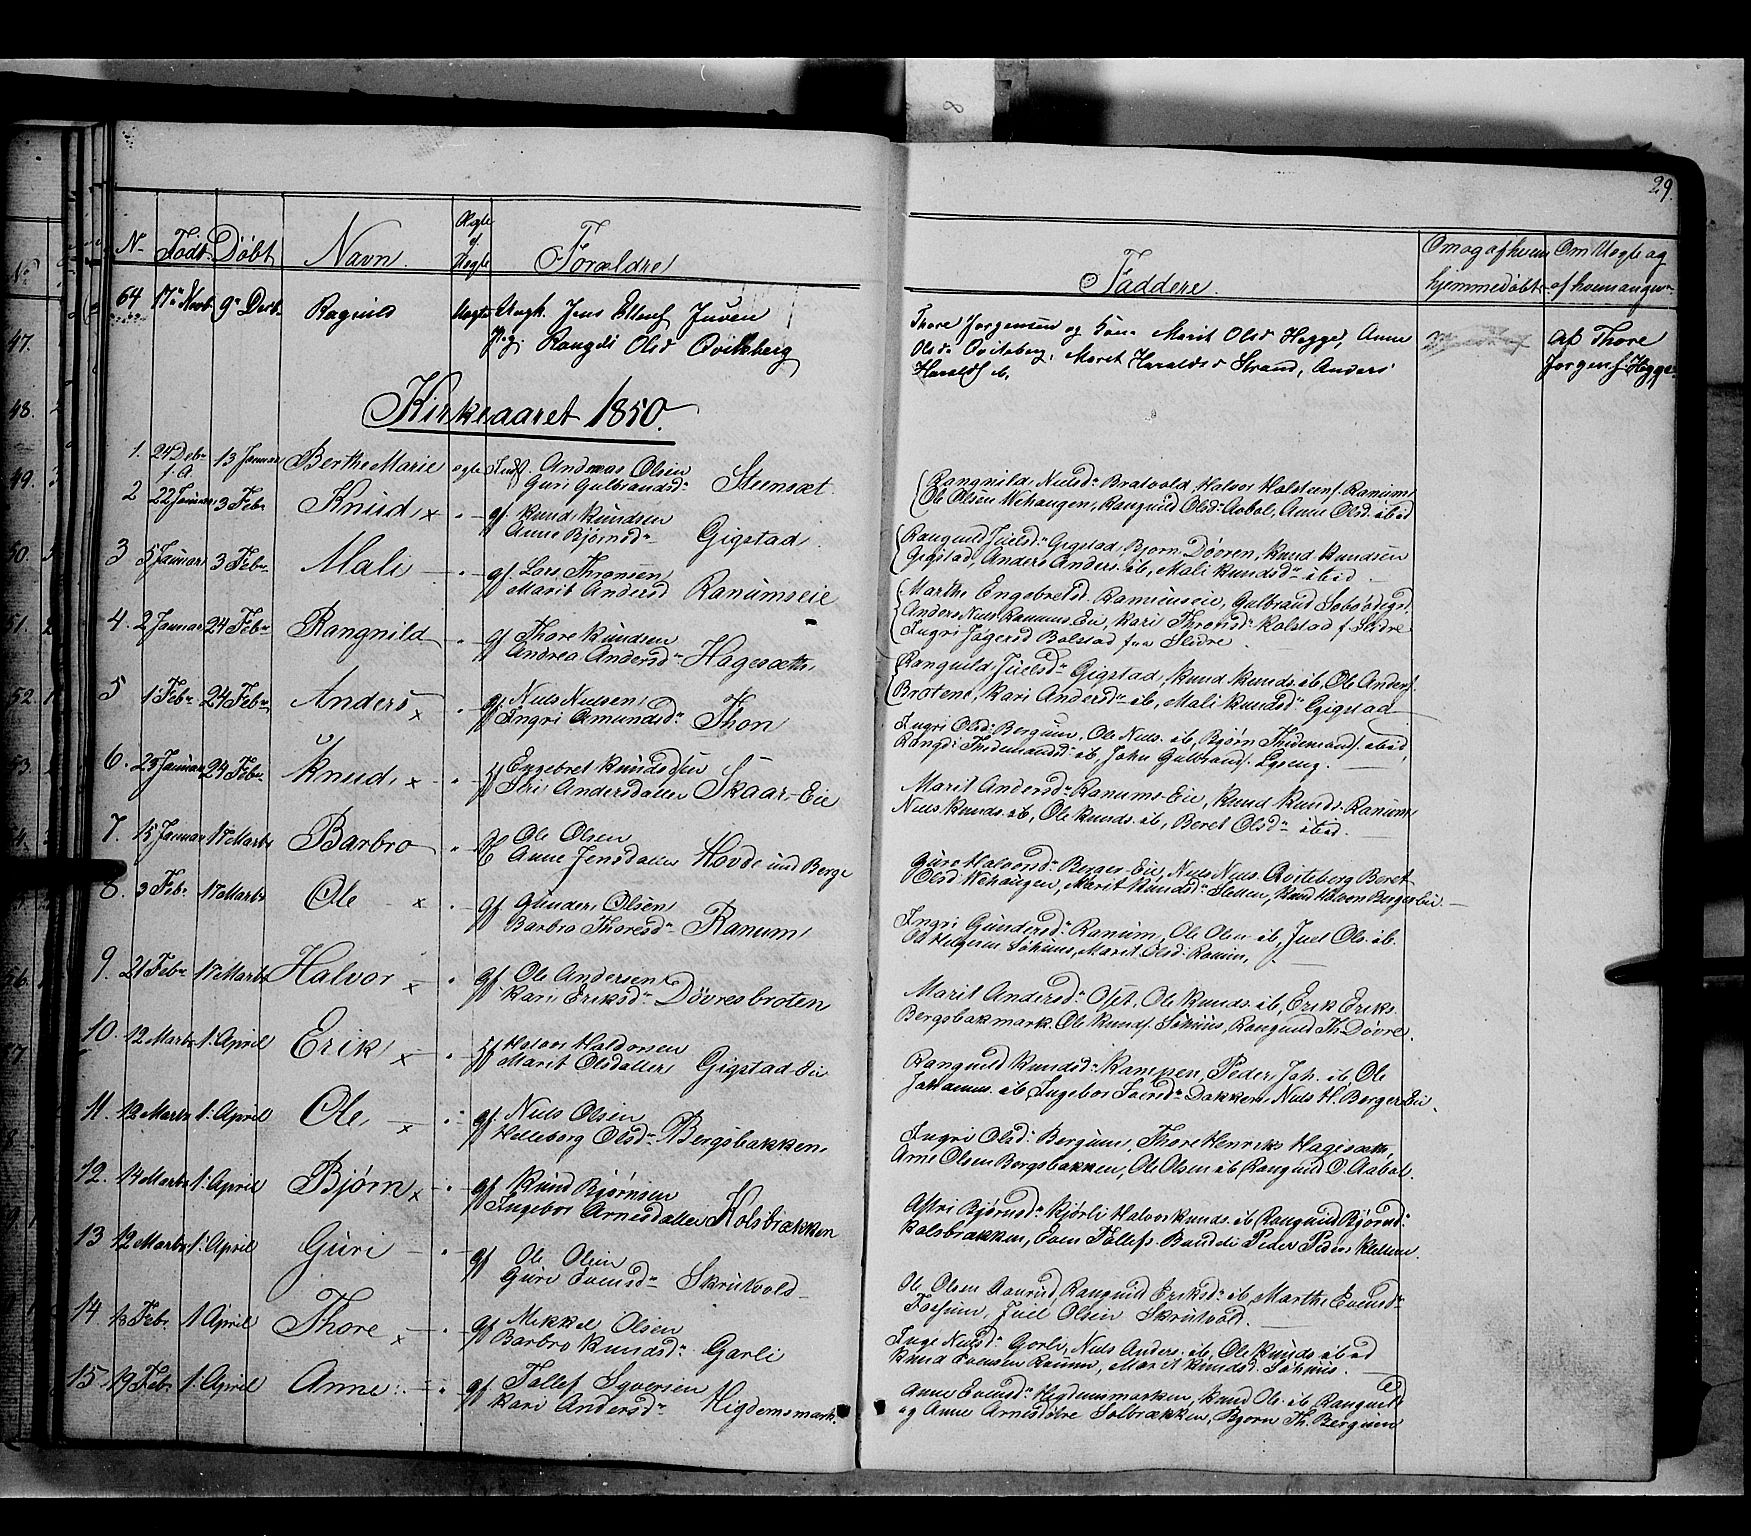 29.
N. Født Døbt Navn. Ægte el Uegte Forældre
Faddere. Om og af hvem hjemmedøbt Om Uegte og af hvem angiv.
64 17 Novb 9 Decb. Ragnild Uegte Ungk. Jens Ellens Juven
Pig. Rangdi Olsd Qvitberg
Thore Jorgensen og Kone Marit Olsd Hegge, Anne
Olsd. Qviteberg, Marit Haraldsd Strand, Anders
Haralds ib.
Af Thore
Jorgens. Hegge.
Kirkeaaret 1850.
1. 24 Debr f. A 13 Januar Berthe Marie egte Inds. Andreas Olsen
Guri Gulbrandsd. Steensæt.
Rangnild Nielsd. Bratvold, Halvor Holstens. Ranum
Ole Olsen Wehaugen, Rangnid Olsd. Aabol, Anne Olsd. ibid
2 22 Januar 3 Feb. Knud x " gf Knud Knudsen
Anne Bjørnsd. Gigstad.
Rangnid Juelsd. Gigstad, Bjørn Døvren, Knud Knudsen
Gigstad, Anders Anders. ib, Mali Knudsd. ibid
3 5 Januar 3 Feb. Mali " gf. Lars Thronsen
Marit Andersd Ranumseie
Marthe Engebretsd. Ranumseie, Gulbrand
Anders Niels Ranums Eie, Kari Thronsd. Kolstad f. Slidre
Ingri Bolstad fra Slidre.
4. 2 Januar 24 Feb. Rangnild " gf Thore Knudsen
Andrea Andersd. Hagesæth
Rangnild Juelsd. Gigstad, Knud Knuds. ib, Ole Anders.
Bratene, Kari Andersd. ib, Mali Knudsd. Gigstad
5 1 Feb. 24 Feb. Anders x " gf Niels Nielsen
Ingri Amundsd. Thon
Ingri Olsd. Bergum, Ole Niels. ib, Bjørn Thidemans. ibid,
Rangdi Thidemandsd. ib, John Gulbrands.
6. 23 Januar 24 Feb. Knud x " gf Engebret Knudsen
Siri Andersdatter Skaar-Eie
Marit Andersd. Ranums-Eie, Knud Knuds. Ranum
Niels Knuds. ib, Ole Knuds. ib, Beret Olsd. ibid.
7. 15 Januar 17 Marts Barbro " gf Ole Olsen
Anne Jensdatter Hovde und Berge
Guri Halvorsd. Berges-Eie, Niels Niels. Qviteberg Beret
Olsd. Wehaugen, Marit Knudsd. Sletten, Knud Halvors Berges Eie
8. 3 Feb. 17 Marts Ole x " gf Gunder Olsen
Barbro Thoresd. Ranum
Ingri Gundersd. Ranum, Ole Olsen ib, Juel Ols. ib.
Marit Olsd. Ranum,
9. 21 Feb. 17 Marts Halvor x " gf Ole Andersen
Kari Eriksd. Døvresbroten
Marit Andersd. Ole Knuds. ib, Erik Eriks.
Bergsbakmark, Ole Knuds. Rangnid Th. Døvre.
10. 12 Marts 1. April Erik x " gf Halvor Haldorsen
Marit Olsdatter Gigstad-Eie
Rangnid Knudsd. Kampen, Peder Joh. ib Ole
Johannes. ib, Ingebor Dokken, Niels H. Berger Eie.
11. 12 Marts 1. April Ole x " gf Niels Olsen
Helleborg Olsd. Bergsbakken
Ingri Olsd. Bergum, Thore Henriks. Hagesæth,
Arne Olsen Bergsbakken, Ole Olsen ib, Rangnid O. Aabol.
12. 14 Marts 1. April Bjørn x " gf Knud Bjørnsen
Ingebor Arnesdatter Kolsbrækken
Astri Bjørnsd. Kjørli Halvor Knuds. ib, Rangnid Bjørnsd.
Kolsbrækken, Even Tollefs. Peder Peders.
13 12 Marts 1. April Guri " gf Ole Olsen
Guri Evensd. Skrutvold
Ole Olsen Rangnid Eriksd. ib, Marthe Evensd.
Fossum, Juel Olsen Skrutvold.
14 13 Feb. 1 April Thore x " gf Mikkel Olsen
Barbro Knudsd. Garli
Inge Nielsd. Gorli, Niels Anders. ib, Ole Knuds ibid
Knud Evensen Ranum, Marit Knudsd.
15 19 Feb. 1. April Anne " gf Tollef Syversen
Kari Andersd. Higdemsmark.
Anne Evensd. Higdemsmarken, Knud Ole. ib, Rangnild
og Anne Arnesdøtre Kolbrækken, Bjørn Th. Bergum